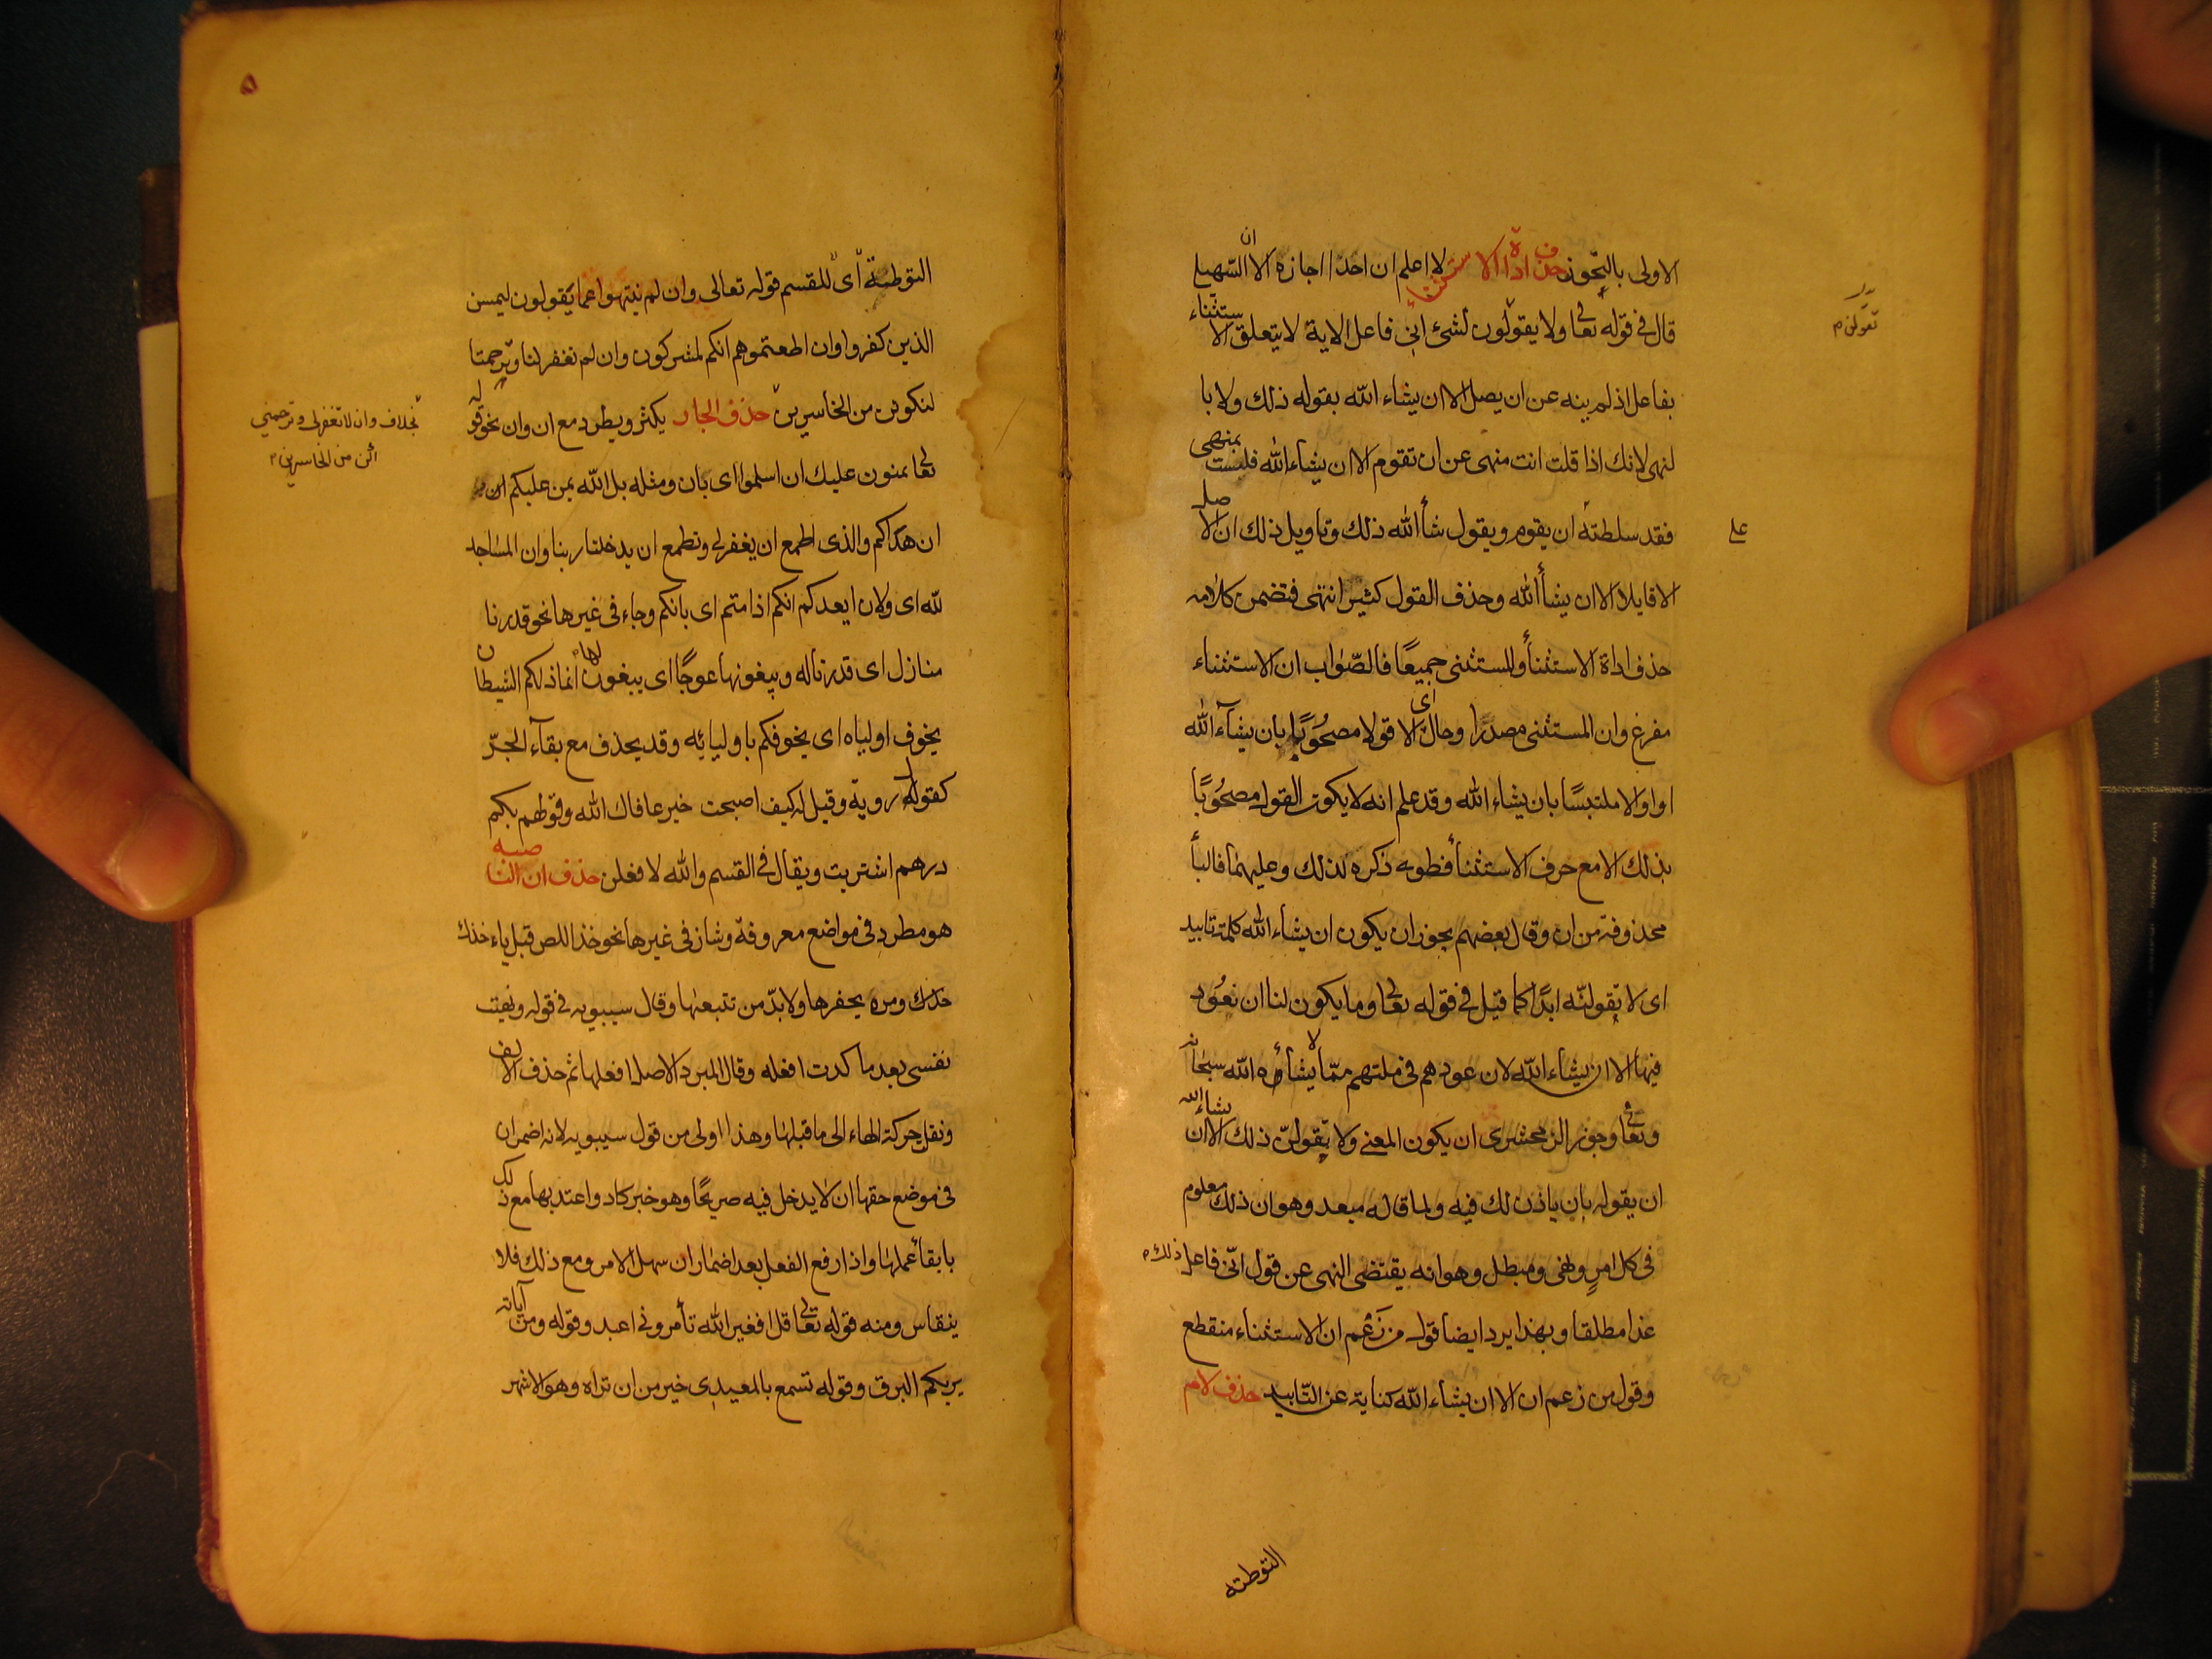 الاولى بالتجوز حذف اداة الاستثناء لا اعلم ان احدا اجازه الا ان السهيلى
قال فى قوله تعالى ولا يقولون لشئ انى فاعل الاية لا يتعلق الاستثناء
تقولن م
بفاعل اذ لم ينه عن ان يصل الا ان يشاء الله بقوله ذلك ولا با
لنهى لانك اذا قلت انت منهى عن ان تقوم الا ان يشاء الله فلست بمنهى
فقد سلطته ان يقوم ويقول شأ الله ذلك وتاويل ذلك ان الاصل
على
الا قايلا الا ان يشأ الله وحذف القول كثير انتهى فتضمن كلامه
حذف اداة الاستثنأ والمستثنى جميعًا فالصّواب ان الاستثناء
مفرغ وان المستثنى مصدرًا وحال اى الا قولا مصحُوبًا بان يشآء الله
او الا ملتبسًا بان يشاء الله وقد علم انه لا يكون القول مصحُوبًا
بذلك الا مع حرف الاستثنأ فطوى ذكره لذلك وعليهما فالبأ
محذوفة من ان وقال بعضهم يجوز ان يكون ان يشاء الله كلمة تابيد
اى لا تقولنّه ابدًا كما قيل فى قوله تعالى وما يكون لنا ان نعُود
فيها الا ان يشاء الله لان عودهم فى ملتهم ممّا لا يشأه الله سبحانه
وتعالى وجوز الزمخشرى ان يكون المعنى ولا تقولنّ ذلك الا ان يشاء الله
ان يقوله بان ياذن لك فيه ولما قاله مبعد وهو ان ذلك معلوم
فى كل امرٍ ونهى ومبطل وهو انه يقتضى النهى عن قول انّى فاعل ذلك
غدا مطلقا وبهذا يرد ايضا قول من زَعم ان الاستثناء منقطع
وقول من زعم ان الا ان يشاء الله كناية عن التابيد حذف لام
التوطئه
٥
التوطئة اى للقسم قوله تعالى وان لم ينتهوا عما يقولون ليمسن
الذين كفروا وان اطعتموهم انكم لمشركون وان لم تغفر لنا وترحمنا
لنكونن من الخاسرين حذف الجار يكثر ويطرد مع ان وان نحو قوله
بخلاف وان لا تغفر لى وترحمنى
اكن من الخاسرين م
تعالى يمنون عليك ان اسلموا اى بان ومثله بل الله يمن عليكم
ان هداكم والذى اطمع ان يغفر لى ونطمع ان يدخلنا ربنا وان المساجد
لله اى ولان ايعدكم انكم اذا متم اى بانكم وجاء فى غيرها نحو قدرنا
منازل اى قدرنا له ويبغونها عوجًا اى يبغون لها انما ذلكم الشيطان
يخوف اولياه اى يخوفكم باوليايه وقد يحذف مع بقآء الجرّ
كقول روية وقيل له كيف اصبحت خير عافاك الله وقولهم بكم
درهم اشتريت ويقال فى القسم والله لافعلن حذف ان الناصبه
هو مطرد فى مواضع معروفة وشاز فى غيرها نحو خذ اللص قبل ياخذك
ومره يحفرها ولا بدّ من تتبعها وقال سيبويه فى قوله ونهنهت
نفسى بعد ما كدت افعله وقال المبرد الاصل افعلها ثم حذف الالف
ونقل حركة الهاء الى ما قبلها وهذا اولى من قول سيبويه لانه اضمر ان
فى موضع حقها ان لا يدخل فيه صريحًا وهو خبر كاد واعتد بها مع ذلك
بابقأ عملها واذا رفع الفعل بعد اضمار ان سهل الامر ومع ذلك فلا
ينقاس ومنه قوله تعالى قل افغير الله تأمرونى اعبد وقوله ومن آياته
يريكم البرق وقوله تسمع بالمعيدى خير من ان تراه وهو الاشهر